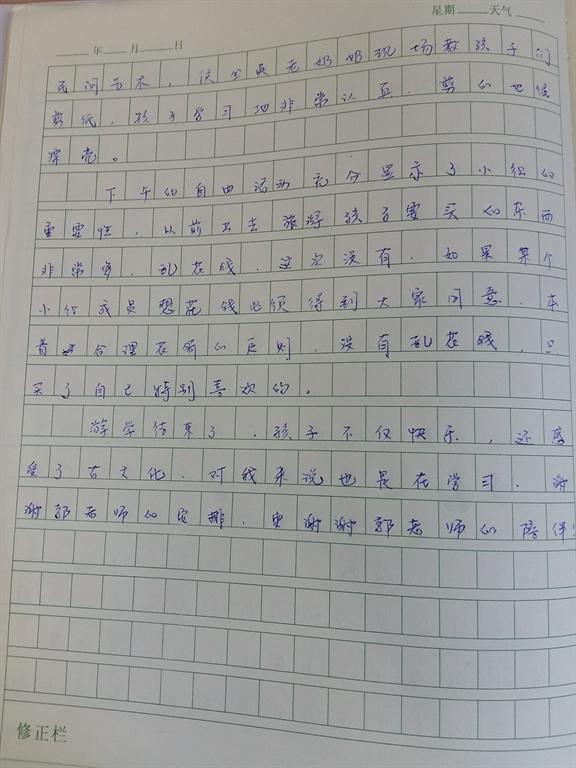 星期 天气
年 月 日
民间艺术，侯金英老奶奶现场教孩子们
剪纸，孩子学习地非常认真，剪的也很
漂亮。
下午的自由活动充分显示了小组的
重要性，以前出去旅游孩子要买的东西
非常多，乱花钱，这次没有，如果某个
小组成员想花钱必须得到大家同意，本
着合理花销的原则，没有乱花钱，只
买了自己特别喜欢的。
游学结束了，孩子不仅快乐，还感
受了古文化，对我来说也是在学习，谢
谢郭老师的安排，更谢谢郭老师的陪伴！
修正栏